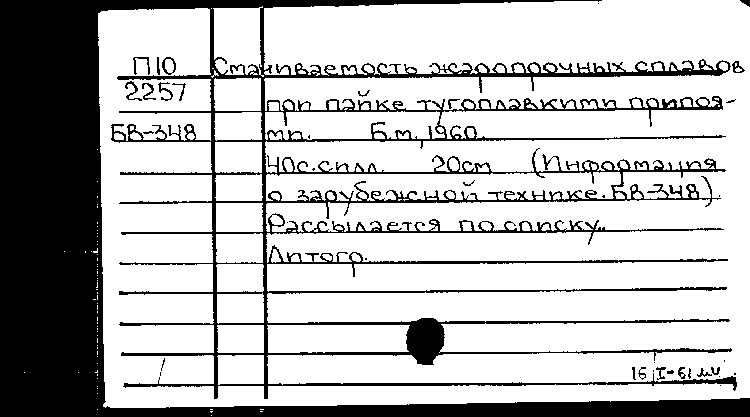 П10 Смачиваемость жаропрочных сплавов
2257 при пайке тугоплавкими припоя-
БВ-348 ми. Б.м., 1960.
40с.с илл. 20см (Информация
о зарубежной технике. БВ-348)
Рассылается по списку.
Литогр.
16 I-61